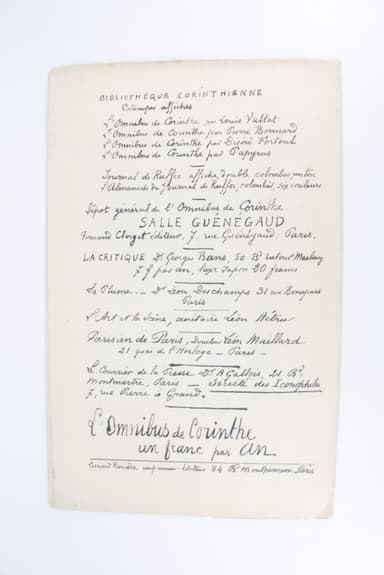 BIBLIOTHÈQUE CORINTHIENNE
Estampes affiches
L'Omnibus de Corinthe par Louis Valtat
L'Omnibus de Corinthe par Pierre Bonnard
L'Omnibus de Corinthe par Désiré Fortoul
L'Omnibus de Corinthe par Papyrus
Journal de Ruffec affiche double colombier un ton
L'Almanach du Journal de Ruffec, colombier, six couleurs
Dépôt général de l'Omnibus de Corinthe
SALLE GUÉNÉGAUD
Fernand Clerget éditeur, 7, rue Guénégaud, Paris.
LA CRITIQUE Dr Georges Bans, 50 Bd Latour Maubourg
7 f par an, luxe Japon 20 francs
La Plume - Dr Léon Deschamps 31 rue Bonaparte
Paris
L'Art et la Scène, secrétaire Léon
Parisien de Paris, Directeur Léon Maillard
21 quai de l'Horloge - Paris -
Le Courrier de la Presse Dr A Gallois, 21 Bd
Montmartre, Paris - Société des Iconophiles
7, rue Pierre le Grand.
L'Omnibus de Corinthe
un franc par an
imprimeur-Editeur 84 Bd Montparnasse Paris